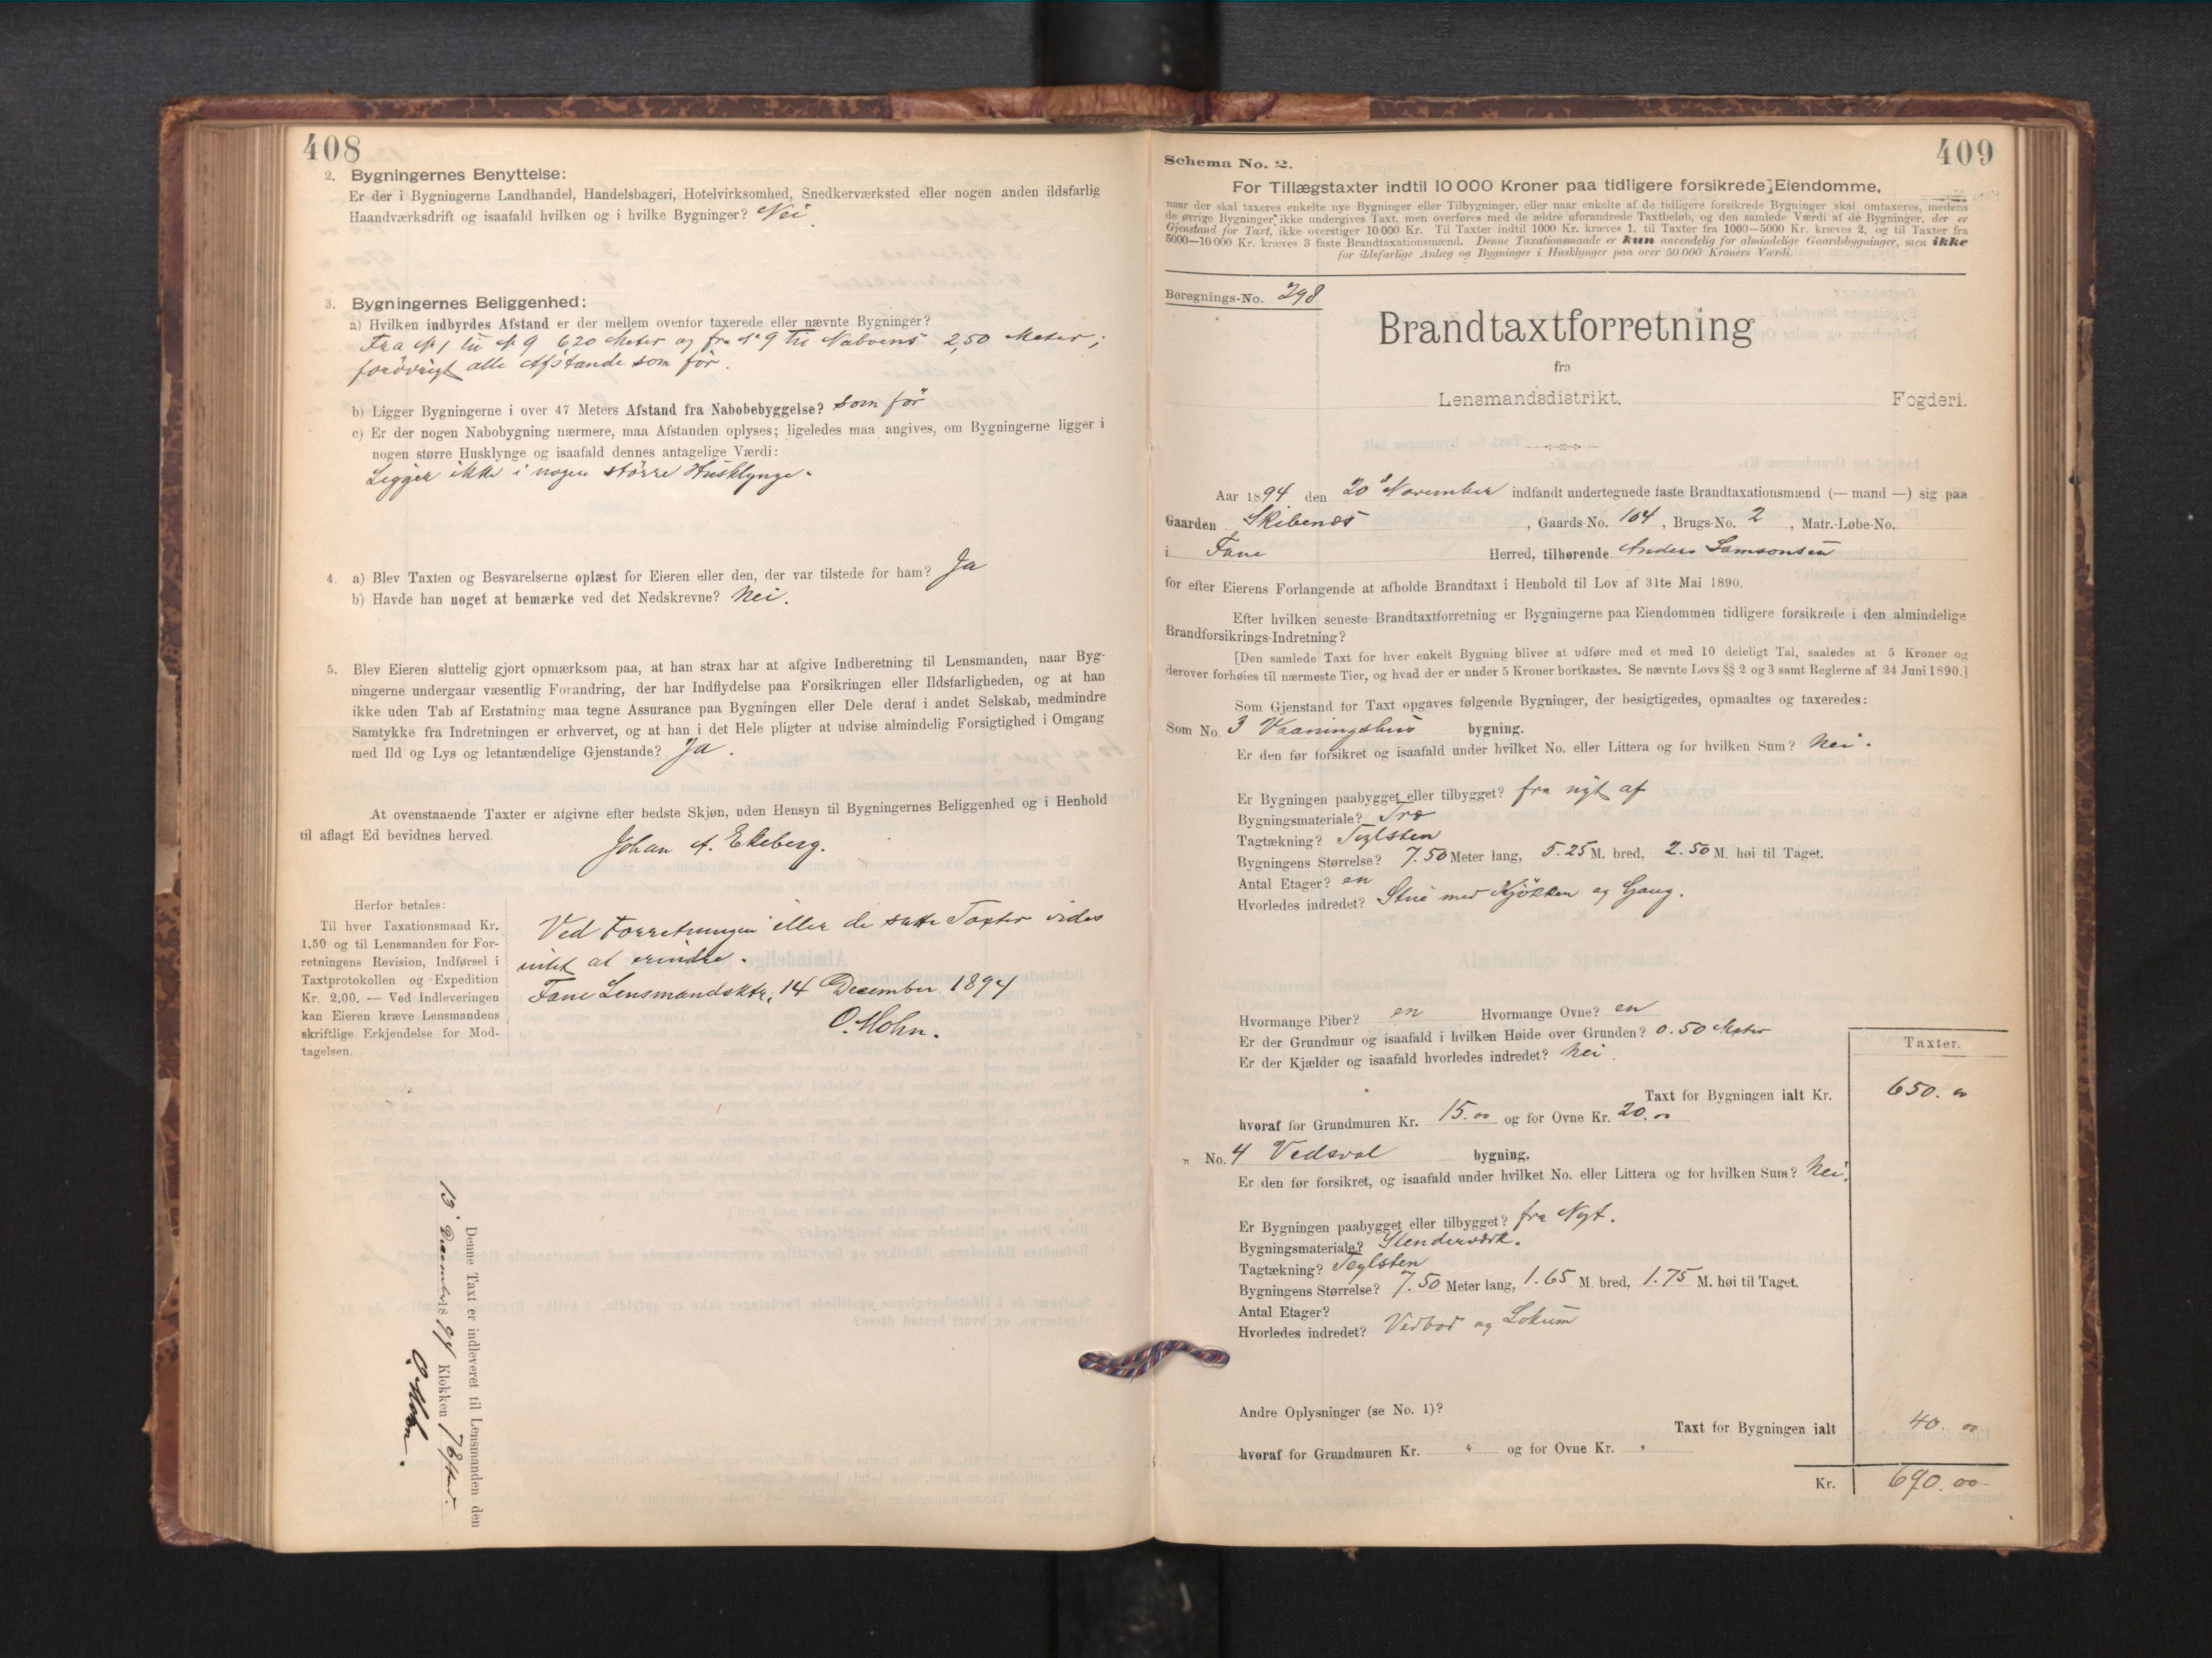 408
2. Bygningernes Benyttelse:
Er der i Bygningerne Landhandel, Handelsbageri, Hotelvirksomhed, Snedkerværksted eller nogen anden ildsfarlig
Haandværksdrift og isaafald hvilken og i hvilke Bygninger? Nei
3. Bygningernes Beliggenhed:
a) Hvilken indbyrdes Afstand er der mellem ovenfor taxerede eller nævnte Bygninger?
Fra No 1 til No 9 620 Meter og fra No 9 til Naboens 2,50 Meter;
forövrigt alle Afstande som för.
b) Ligger Bygningerne i over 47 Meters Afstand fra Nabobebyggelse? som för
c) Er der nogen Nabobygning nærmere, maa Afstanden oplyses; ligeledes maa angives, om Bygningerne ligger i
nogen større Husklynge og isaafald dennes antagelige Værdi:
Ligger ikke i nogen större Husklynge.
4. a) Blev Taxten og Besvarelserne oplæst for Eieren eller den, der var tilstede for ham? Ja
b) Havde han noget at bemærke ved det Nedskrevne? Nei.
5. Blev Eieren sluttelig gjort opmærksom paa, at han strax har at afgive Indberetning til Lensmanden, naar Byg-
ningerne undergaar væsentlig Forandring, der har Indflydelse paa Forsikringen eller Ildsfarligheden, og at han
ikke uden Tab af Erstatning maa tegne Assurance paa Bygningen eller Dele deraf i andet Selskab, medmindre
Samtykke fra Indretningen er erhvervet, og at han i det Hele pligter at udvise almindelig Forsigtighed i Omgang
med Ild og Lys og letantændelige Gjenstande? Ja.
At ovenstaaende Taxter er afgivne efter bedste Skjøn, uden Hensyn til Bygningernes Beliggenhed og i Henhold
til aflagt Ed bevidnes herved.
Johan A. Ekeberg.
Herfor betales:
Til hver Taxationsmand Kr.
1.50 og til Lensmanden for For-
retningens Revision, Indførsel i
Taxtprotokollen og Expedition
Kr. 2.00. — Ved Indleveringen
kan Eieren kræve Lensmandens
skriftlige Erkjendelse for Mod-
tagelsen.
Ved Forretningen eller de satte Taxter vides
intet at erindre.
Fane Lensmandsktr, 14 December 1894
O. Mohn.
Denne Taxt er indleveret til Lensmanden den
13 December 1894 Klokken 7 Efterm.
O. Mohn.
409
Schema No. 2.
For Tillægstaxter indtil 10 000 Kroner paa tidligere forsikrede Eiendomme,
naar der skal taxeres enkelte nye Bygninger eller Tilbygninger, eller naar enkelte af de tidligere forsikrede Bygninger skal omtaxeres, medens
de øvrige Bygninger ikke undergives Taxt, men overføres med de ældre uforandrede Taxtbeløb, og den samlede Værdi af de Bygninger, der er
Gjenstand for Taxt, ikke overstiger 10 000 Kr. Til Taxter indtil 1000 Kr. kræves 1, til Taxter fra 1000—5000 Kr. kræves 2, og til Taxter fra
5000—10 000 Kr. kræves 3 faste Brandtaxationsmænd. Denne Taxationsmaade er kun anvendelig for almindelige Gaardsbygninger, men ikke
for ildsfarlige Anlæg og Bygninger i Husklynger paa over 50 000 Kroners Værdi.
Beregnings-No. 298
Brandtaxtforretning
fra
Lensmandsdistrikt, Fogderi.
Aar 1894 den 20 November indfandt undertegnede faste Brandtaxationsmænd (— mand —) sig paa
Gaarden Skibenes, Gaards-No. 104, Brugs-No. 2, Matr.-Løbe-No.
i Fane Herred, tilhørende Anders Samsonsen
for efter Eierens Forlangende at afholde Brandtaxt i Henhold til Lov af 31te Mai 1890.
Efter hvilken seneste Brandtaxtforretning er Bygningerne paa Eiendommen tidligere forsikrede i den almindelige
Brandforsikrings-Indretning?
[Den samlede Taxt for hver enkelt Bygning bliver at udføre med et med 10 deleligt Tal, saaledes at 5 Kroner og
derover forhøies til nærmeste Tier, og hvad der er under 5 Kroner bortkastes. Se nævnte Lovs §§ 2 og 3 samt Reglerne af 24 Juni 1890.]
Som Gjenstand for Taxt opgaves følgende Bygninger, der besigtigedes, opmaaltes og taxeredes:
Som No. 3 Vaaningshus bygning.
Er den før forsikret og isaafald under hvilket No. eller Littera og for hvilken Sum? Nei.
Er Bygningen paabygget eller tilbygget? fra nyt af
Bygningsmateriale? Træ
Tagtækning? Teglsten
Bygningens Størrelse? 7.50 Meter lang, 5.25 M. bred, 2.50 M. høi til Taget.
Antal Etager? en
Hvorledes indredet? Stue med Kjökken og Gang.
Hvormange Piber? en Hvormange Ovne? en
Er der Grundmur og isaafald i hvilken Høide over Grunden? 0.50 Meter
Er der Kjælder og isaafald hvorledes indredet? Nei.
Taxter.
Taxt for Bygningen ialt Kr. 650. 00
hvoraf for Grundmuren Kr. 15.00 og for Ovne Kr. 20.00
" No. 4 Vedsval bygning.
Er den før forsikret, og isaafald under hvilket No. eller Littera og for hvilken Sum? Nei.
Er Bygningen paabygget eller tilbygget? fra Nyt.
Bygningsmateriale? Stenderværk.
Tagtækning? Teglsten
Bygningens Størrelse? 7.50 Meter lang, 1.65 M. bred, 1.75 M. høi til Taget.
Antal Etager?
Hvorledes indredet? Vedbod og Lokum
Andre Oplysninger (se No. 1)?
Taxt for Bygningen ialt 40. 00
hvoraf for Grundmuren Kr. " og for Ovne Kr. "
Kr. 690. 00